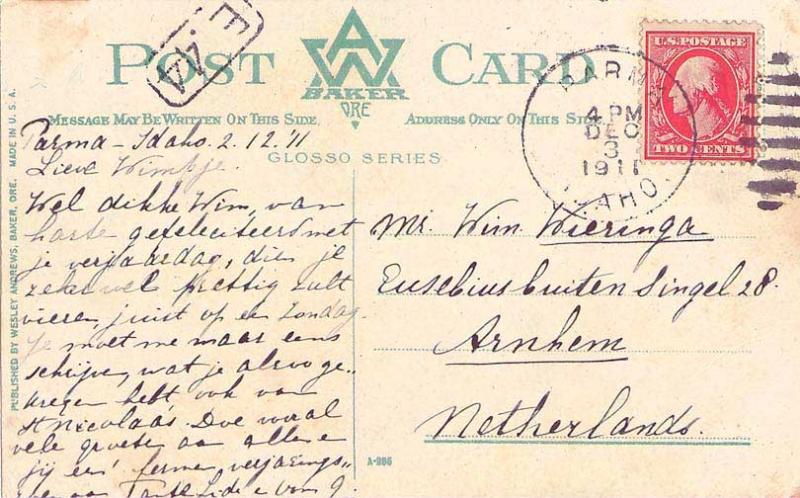 POST CARD
AW
BAKER
ORE
MESSAGE MAY BE WRITTEN ON THIS SIDE
ADDRESS ONLY ON THIS SIDE
GLOSSO SERIES
PUBLISHED BY WESLEY ANDREWS, BAKER, ORE. MADE IN U.S.A.
Parma - Idaho. 2.12.'11
Lieve Wimpje.
Wel dikke Wim, van
harte gefeliciteerd met
je verjaardag, dien je
zeker wel prettig zult
vieren, juist op een Zondag.
Je moet me maar eens
schrijven, wat je alzoo ge-
kregen hebt ook van
St Nicolaas. Doe vooral
vele groeten aan allen e
jij een ferme verjarings-
van Tante
U.S. POSTAGE
TWO CENTS
PARMA
4 PM
DEC
3
1911
IDAHO.
Mr. Wim. Wieringa
Eusebius buiten Singel 28.
Arnhem
Netherlands.
A-286